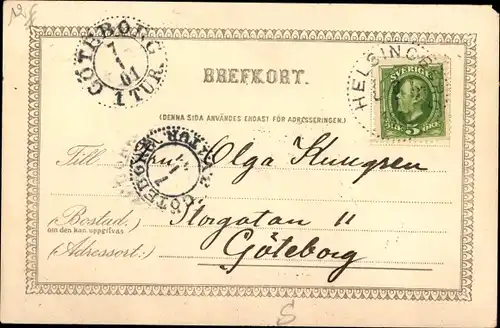 GÖTEBORG
7
1
01
1 TUR.
BREFKORT.
HELSINGB
SVERIGE
5
(DENNA SIDA ANVÄNDES ENDAST FÖR ADRESSERINGEN.)
GÖTEBORG
Till Fru Olga
(Bostad.) Storgatan 11
om den kan uppgifvas
(Adressort:) Göteborg
S